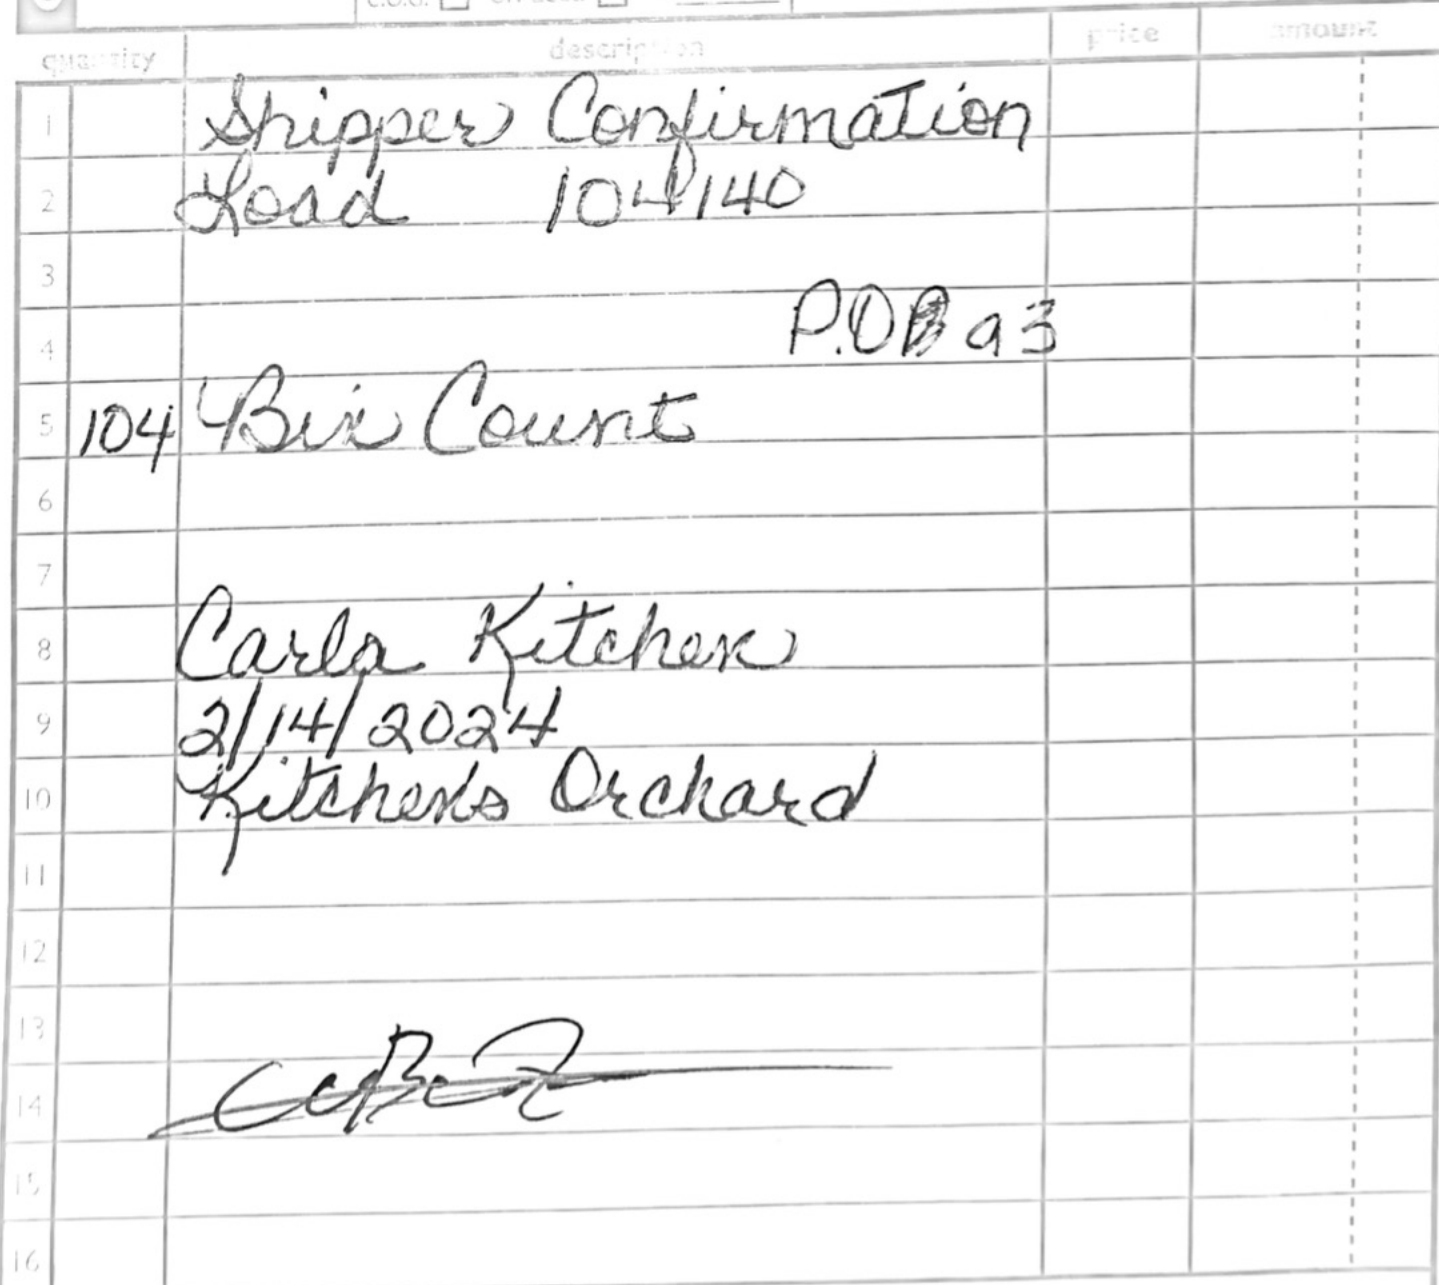 C.O.D.
quantity description price amount
1 Shipper Confirmation
2 Load 104140
3
4 P.O.
5 104 Bin Count
6
7
8 Carla Kitchen
9 2/14/2024
10 Kitchens Orchard
11
12
13
14
15
16